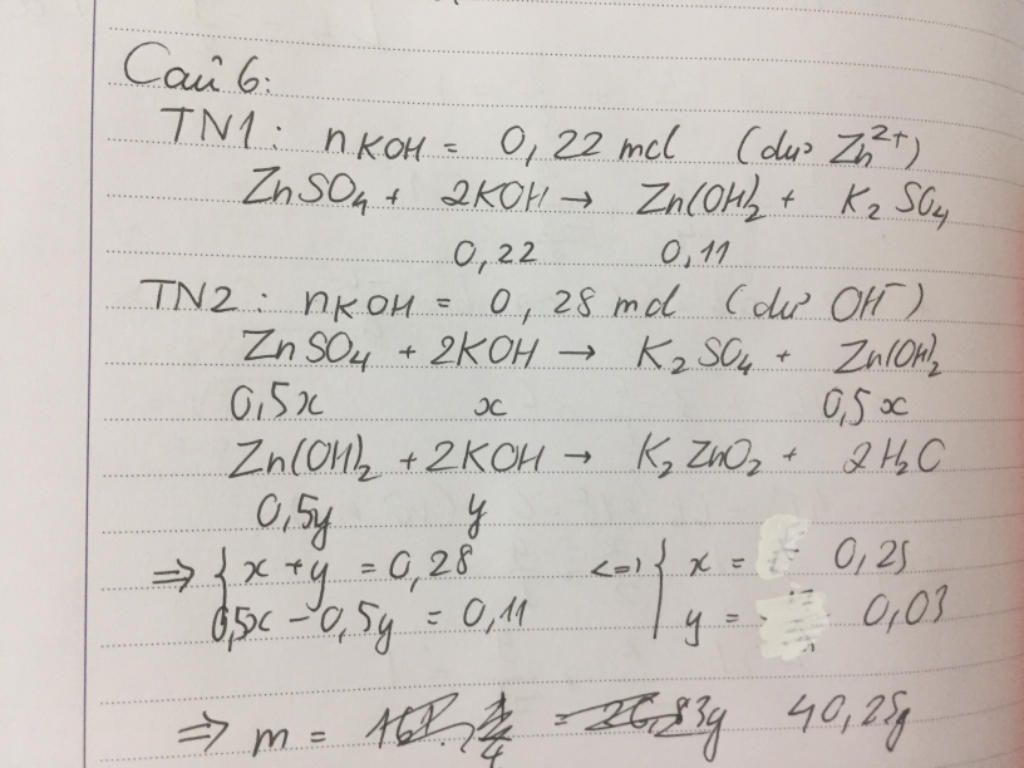 Câu 6:
TN1: nKOH = 0,22 mol (dư Zn²⁺)
ZnSO₄ + 2KOH → Zn(OH)₂ + K₂SO₄
0,22 0,11
TN2: nKOH = 0,28 mol (dư OH⁻)
ZnSO₄ + 2KOH → K₂SO₄ + Zn(OH)₂
0,5x x 0,5x
Zn(OH)₂ + 2KOH → K₂ZnO₂ + 2H₂O
0,5y y
⇒ { x + y = 0,28 <=> { x = 0,25
0,5x - 0,5y = 0,11 y = 0,03
⇒ m = 40,25g